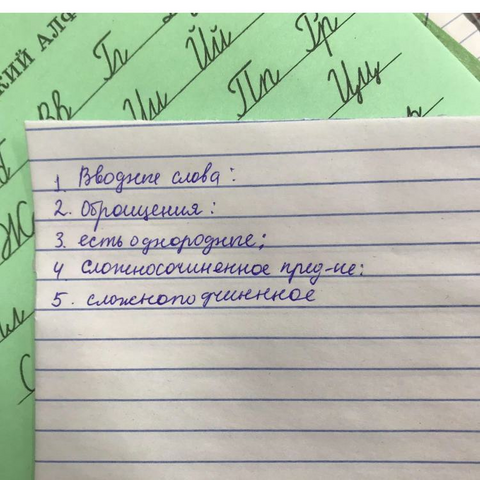 КИЙ АЛФ
Вв Гг Йй
Ии Пп Рр
Цц
1. Вводные слова:
2. Обращения:
3. есть однородные;
4 Сложносочиненное пред-ие:
5. сложноподчиннное